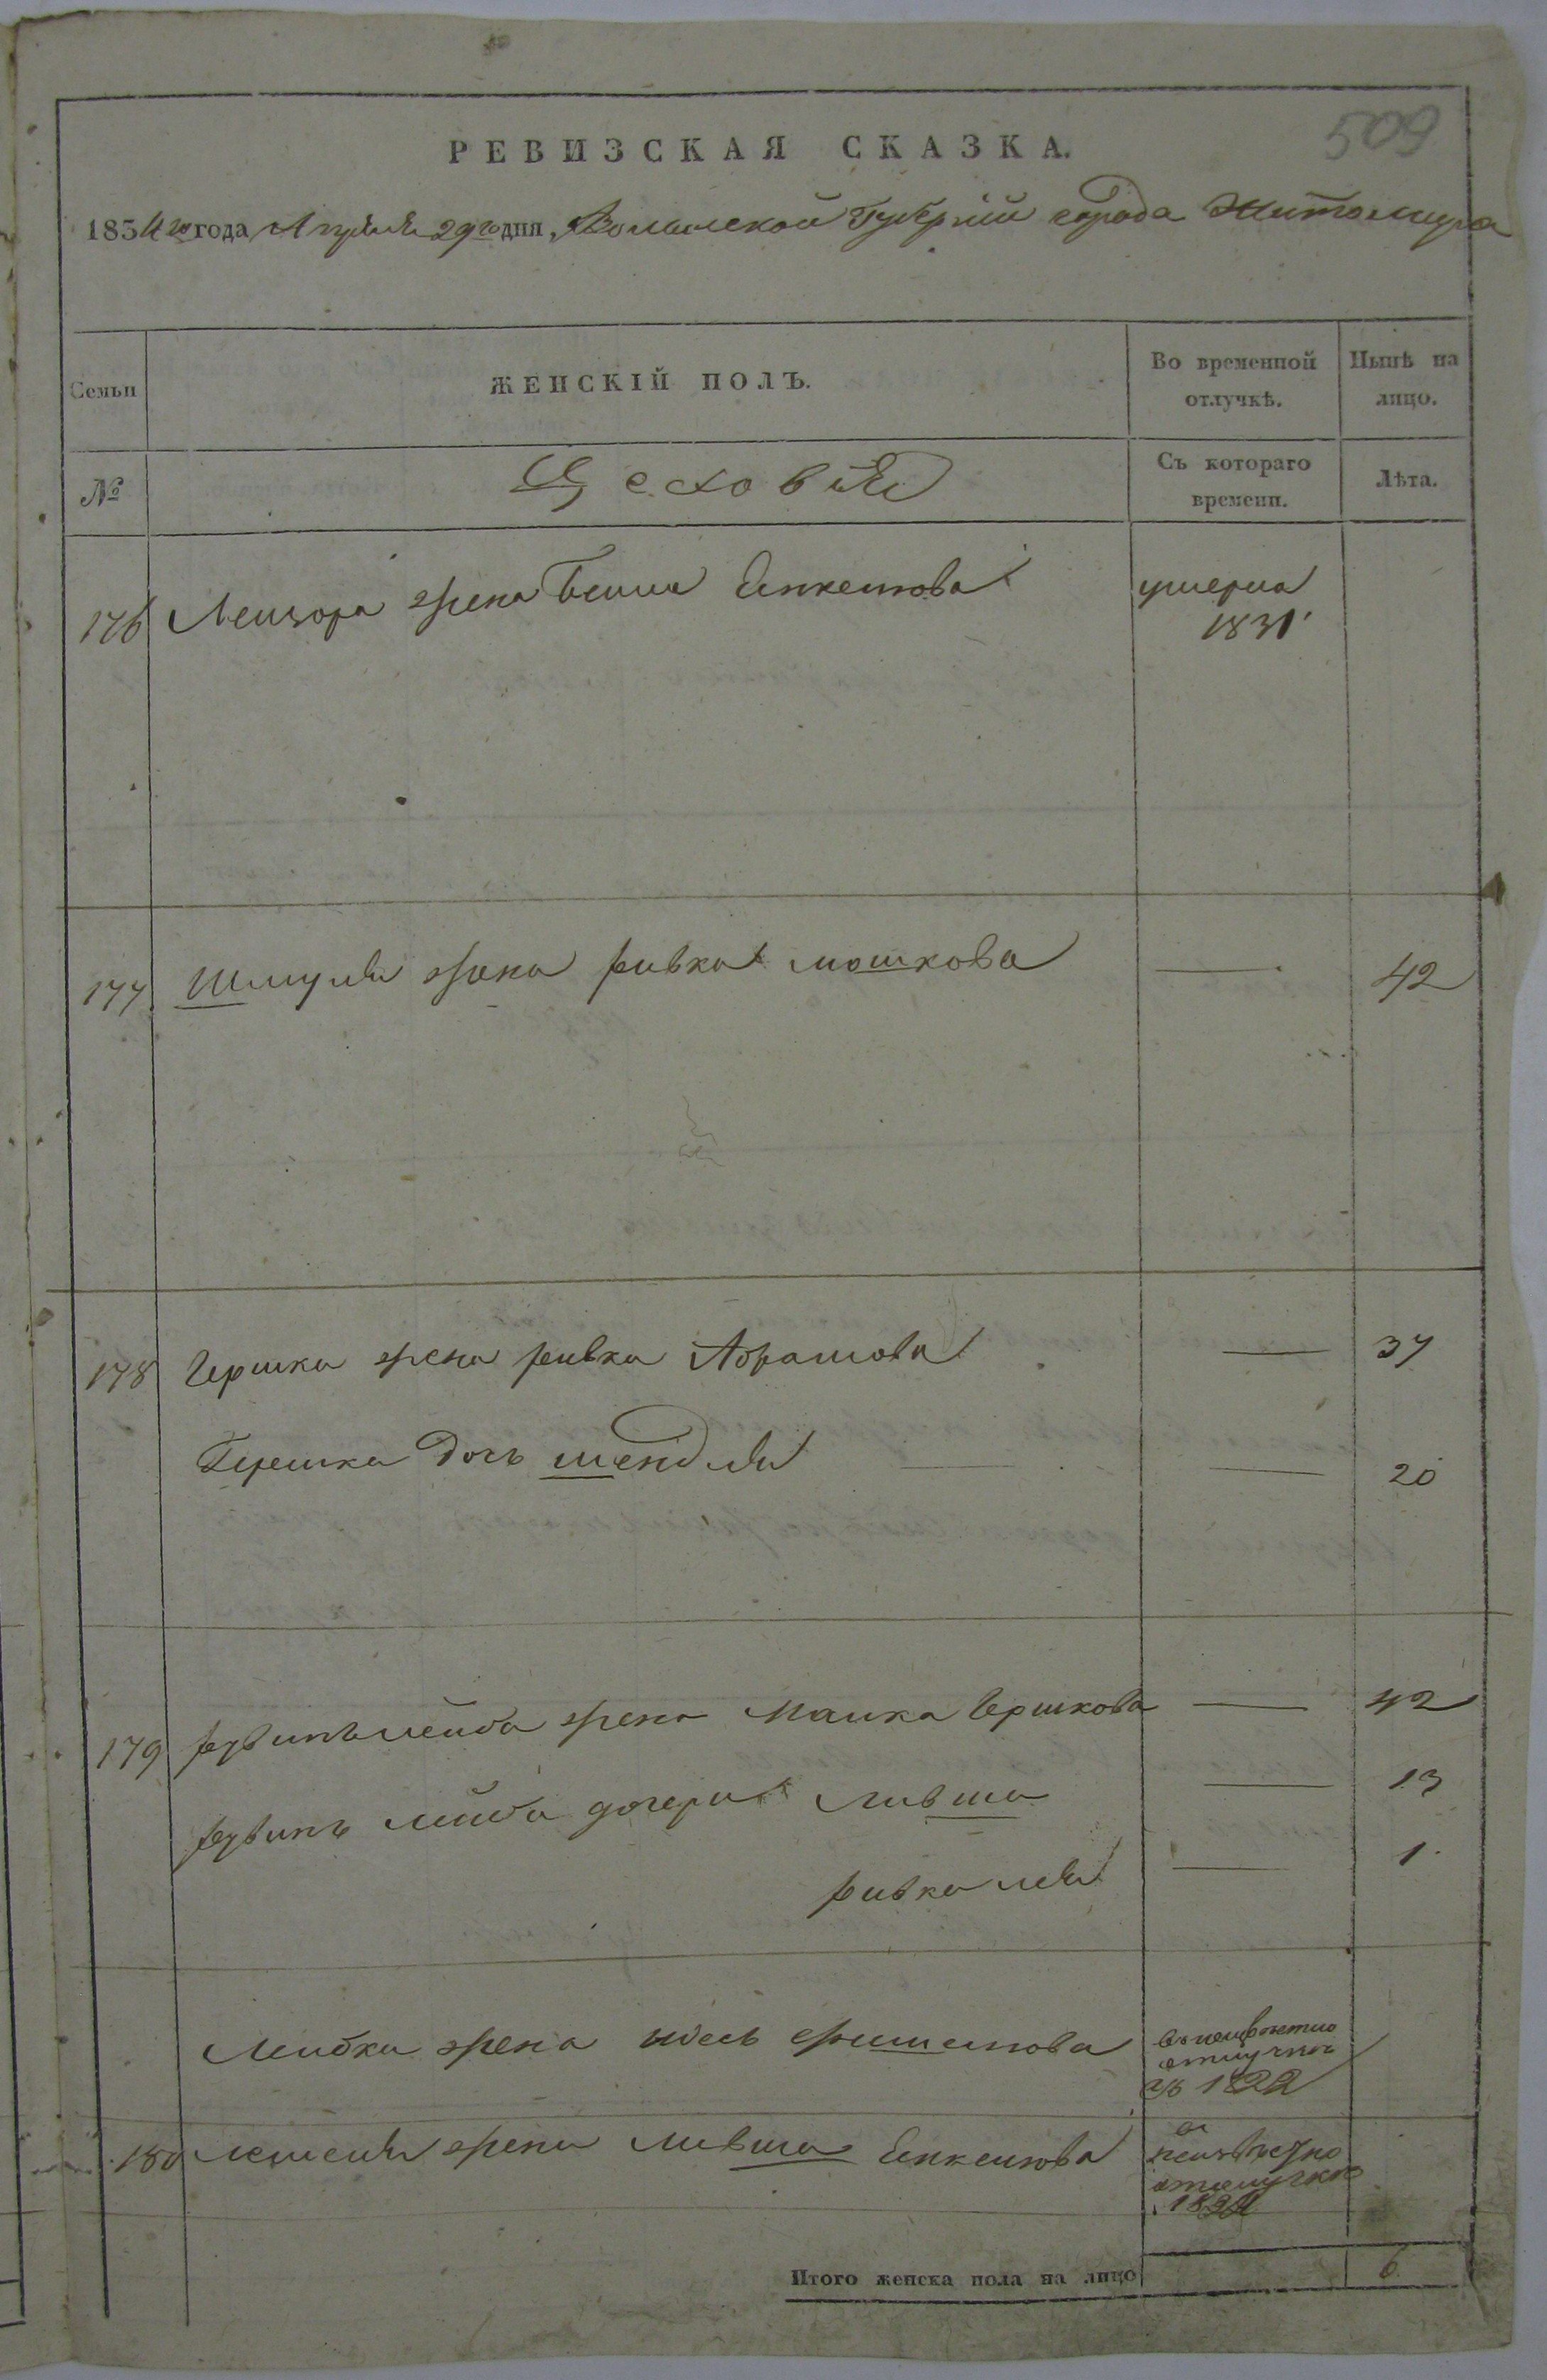 509
РЕВИЗСКАЯ СКАЗКА.
1834 го года Апреля 29 го дня, Волынской Губернии города Житомира
Семьи
ЖЕНСКІЙ ПОЛЪ.
Во временной отлучкѣ.
Нынѣ на лицо.
№
Цеховыя
Съ котораго времени.
Лѣта.
176 Лейзора жена Бейла Енкелиова умерла
1831
177 Шмуля жена ривка мошкова — 42
178 Гершка жена ривка Абрамова — 37
Гершка дочь шендля — 20
179 рувинъ лейба жена Малка Гершкова — 42
рувинъ лейба дочери ливша — 13
ривка лея — 1
Лейбки жена идесь въ неизвестно
отлучке
съ 1822
180 жена ливша Енкелиова в
неизвестно
отлучке
Итого женска пола на лицо 6